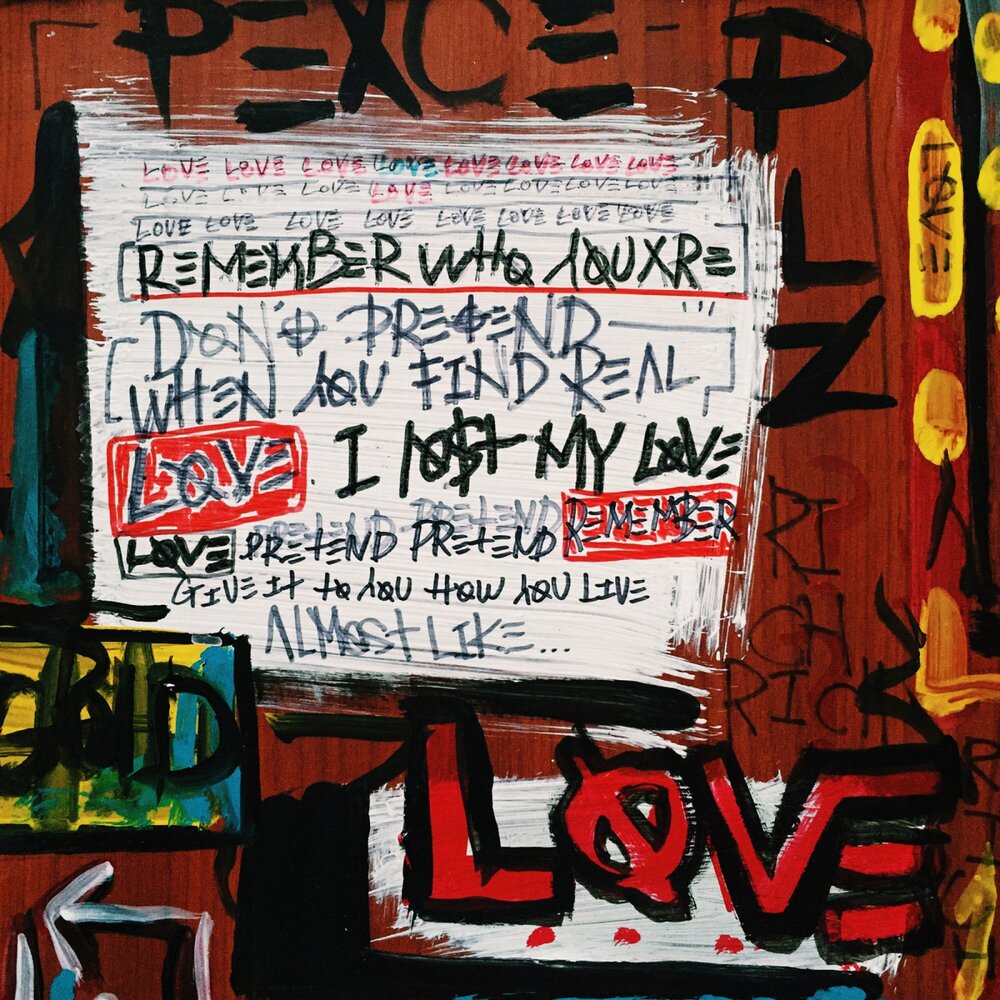 PEACE
PLZ
LOVE LOVE LOVE LOVE LOVE LOVE LOVE LOVE
LOVE LOVE LOVE LOVE LOVE LOVE LOVE LOVE
LOVE LOVE LOVE LOVE LOVE LOVE LOVE LOVE
REMEMBER WHO YOU ARE
DON'T PRETEND
WHEN YOU FIND REAL
LOVE. I LOST MY LOVE
LOVE PRETEND PRETEND REMEMBER
GIVE IT TO YOU HOW YOU LIVE
ALMOST LIKE...
LOVE
LOVE
RI
CH
RICH